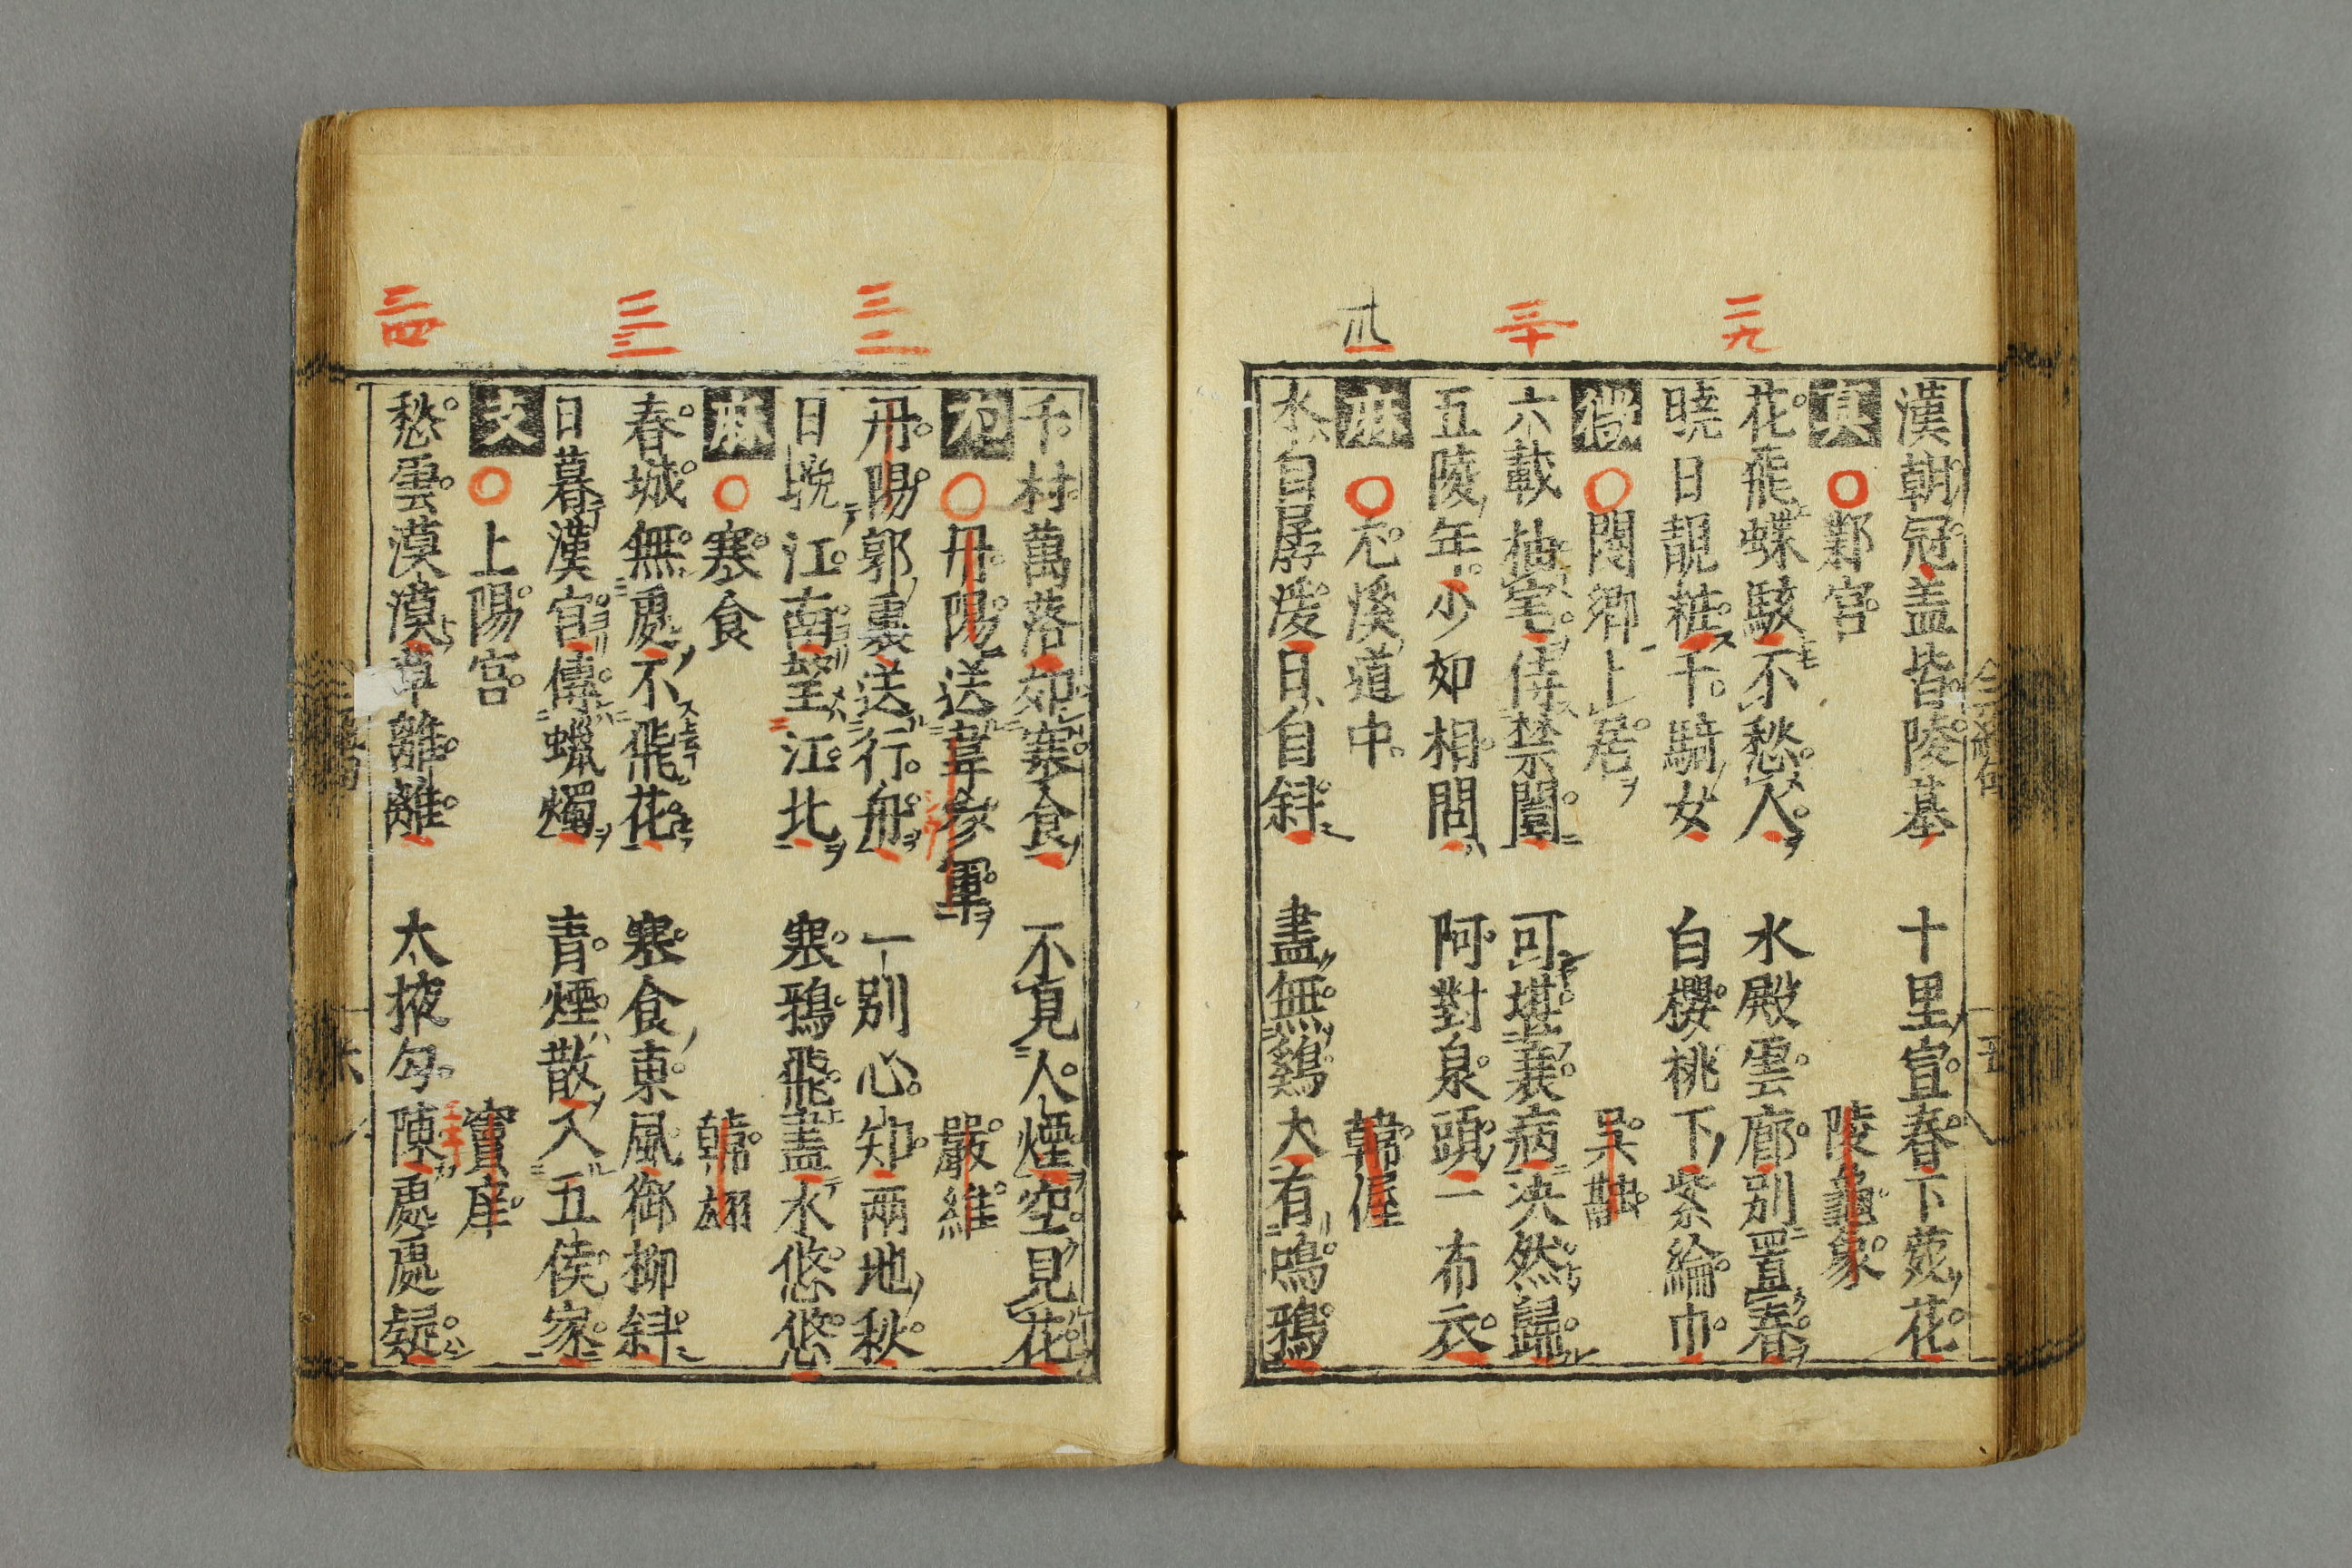 漢朝冠盖皆陵墓 十里宜春下苑花
真 鄴宮 陵龜蒙
花飛蝶駭不愁人 水殿雲廊別置春
曉日靚粧千騎女 白櫻桃下紫綸巾
微 閿鄉卜居 吳融
六載抽毫侍禁闈 可堪衰病决然歸
五陵年少如相問 阿對泉頭一布衣
麻 尤溪道中 韓偓
水自孱湲日自斜 盡無鷄犬有鳴鴉
千村萬落如寒食 不見人煙空見花
尤 丹陽送韋參軍 嚴維
丹陽郭裏送行舟 一別心知兩地秋
日晚江南望江北 寒鴉飛盡水悠悠
麻 寒食 韓翃
春城無處不飛花 寒食東風御柳斜
日暮漢宮傳蠟燭 青煙散入五侯家
支 上陽宮 竇庠
愁雲漠漠草離離 太掖勾陳處處疑
二九
三十
卅一
三二
三三
三四